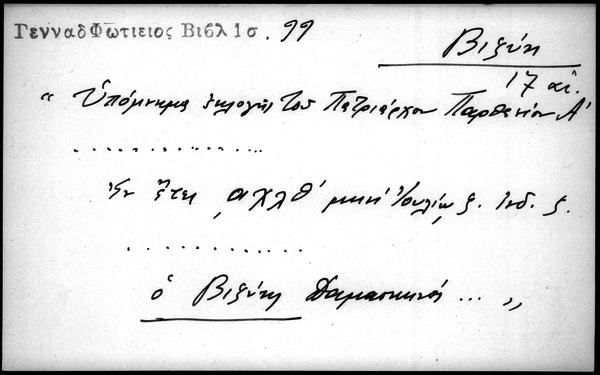 ΓενναδΦωτιειος Βιβλ 1 σ. 99
Βιζύη
17 αἰ.
“ Ὑπόμνημα ἐκλογῆς τοῦ Πατριάρχου Παρθενίου Α'
. . . . . . . . . . . . . .
ἐν ἔτει ͵αχλθ' μηνὶ Ἰουλίῳ ς. Ἰνδ. ζ.
. . . . . . . . . . . . .
ὁ Βιζύης Δαμασκηνός ... ”